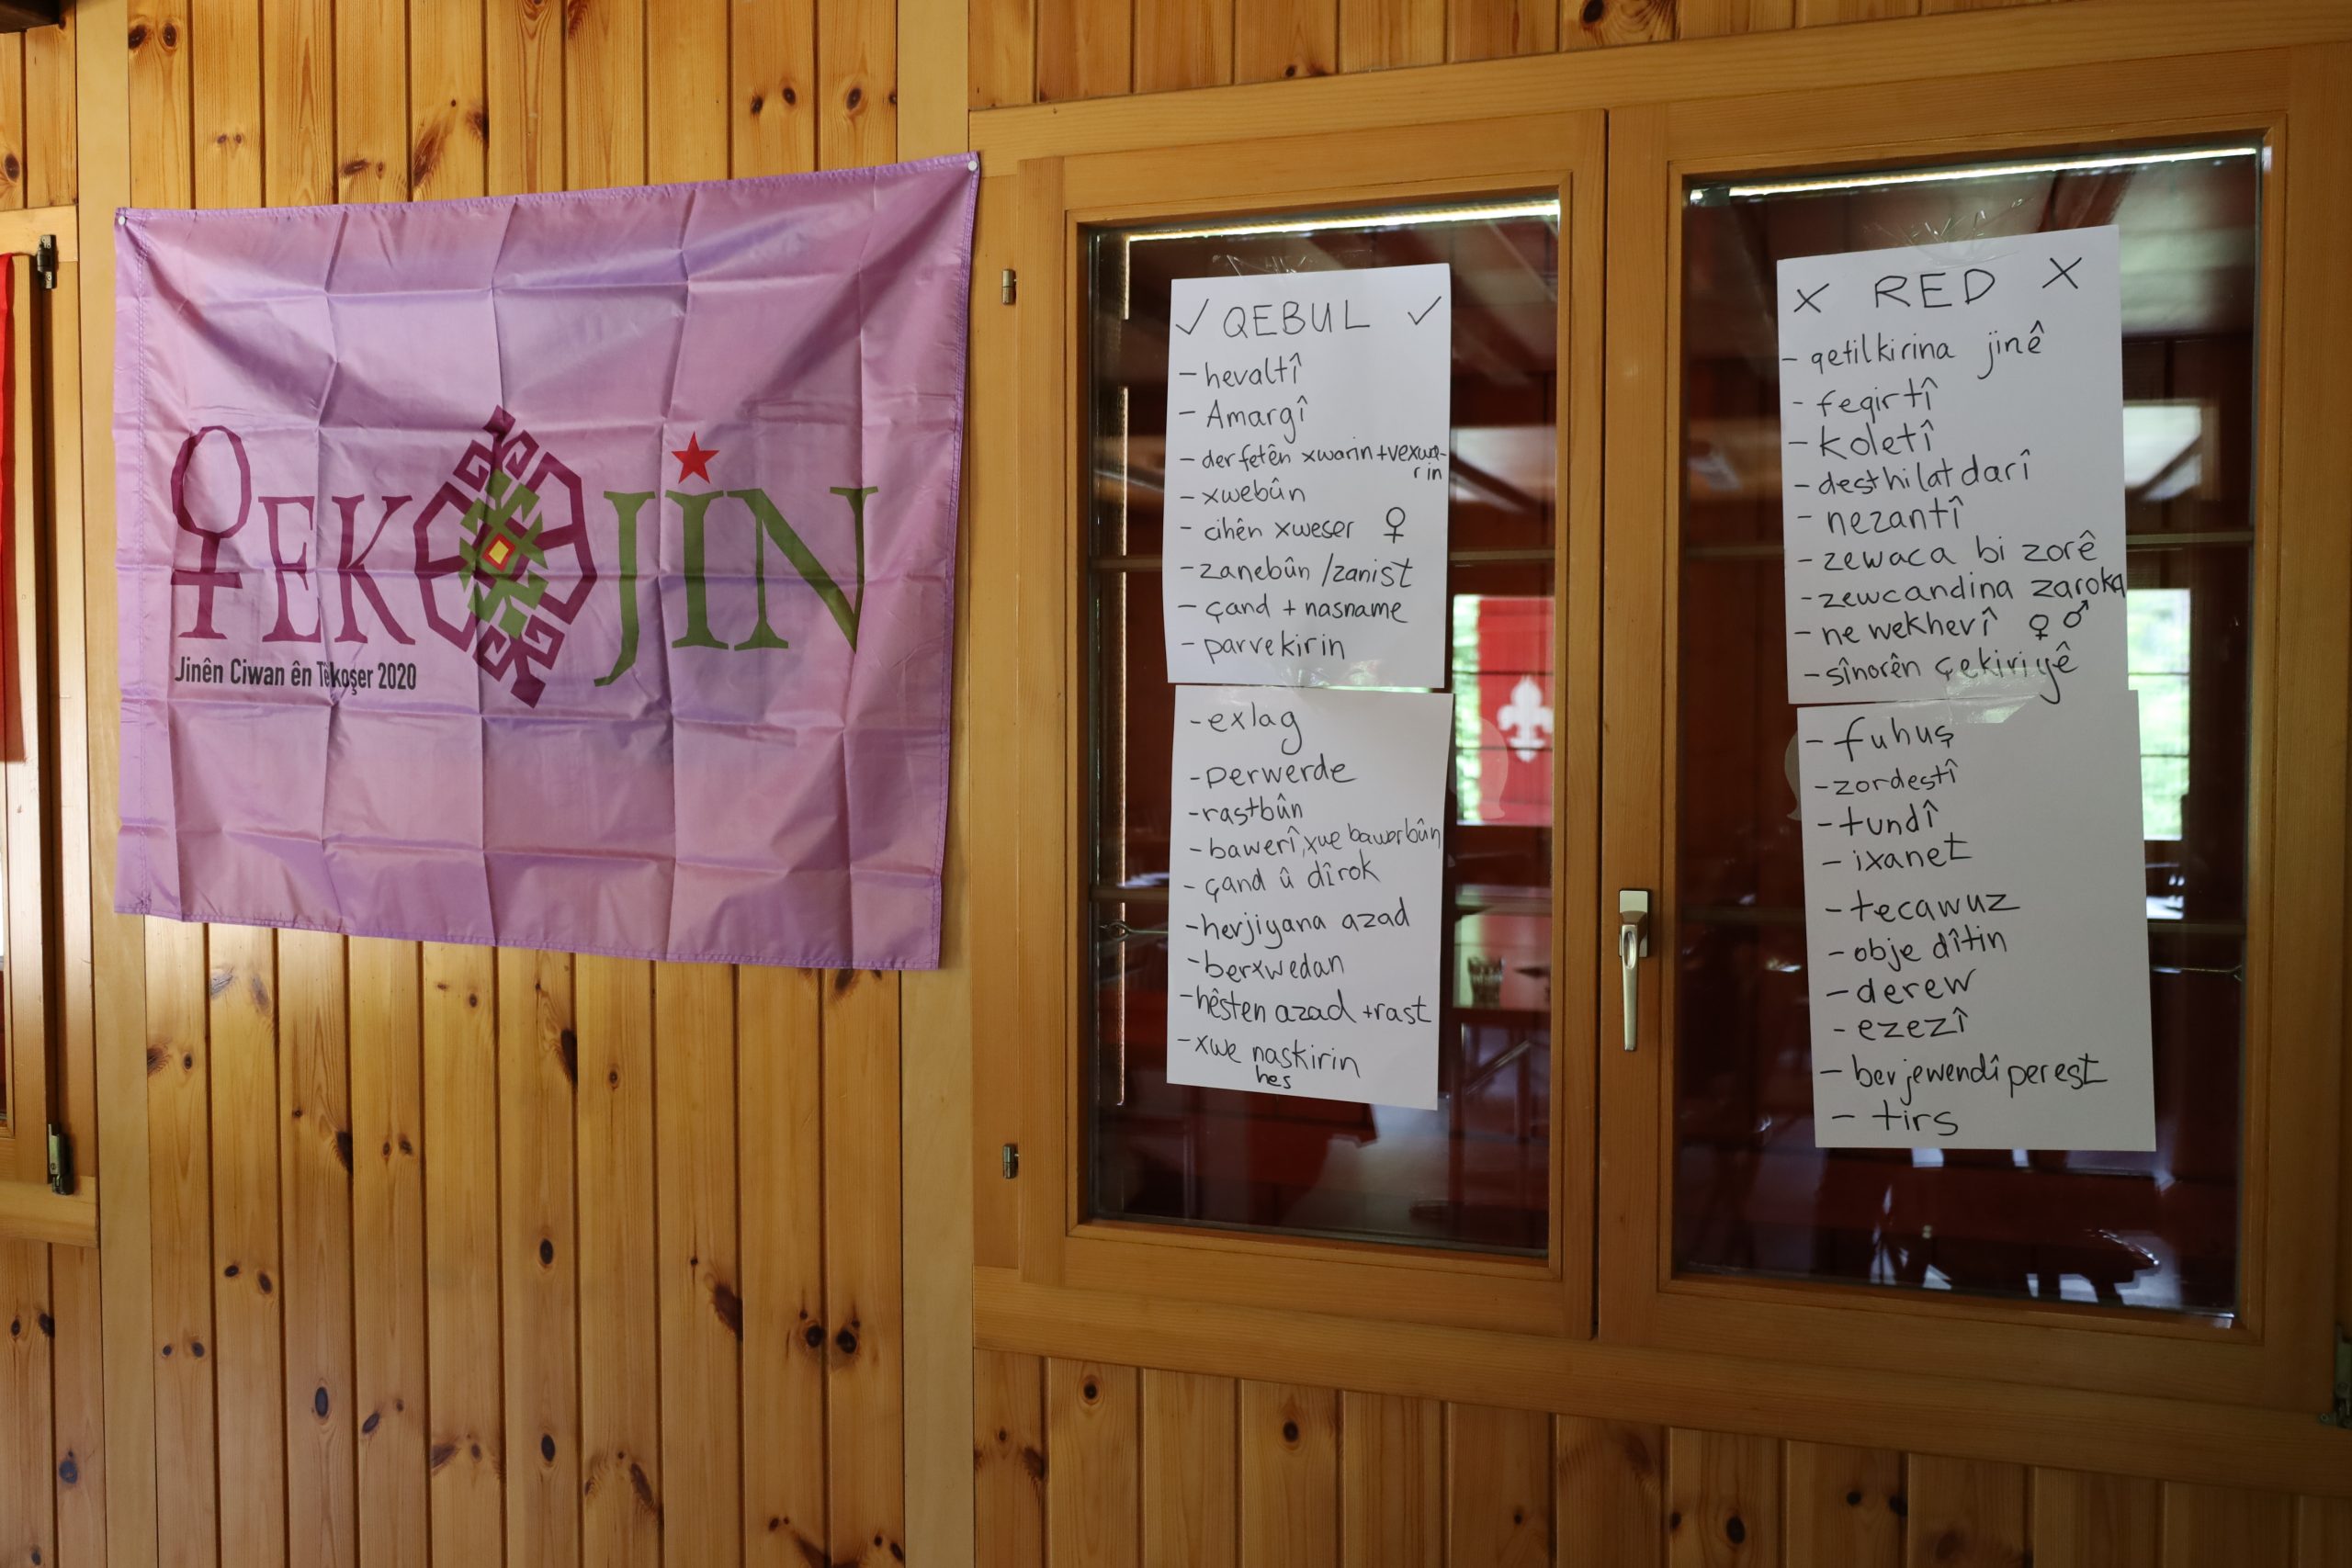 TEKOJIN
Jinên Ciwan ên Têkoşer 2020
✓ QEBUL ✓
- hevaltî
- Amargî
- derfetên xwarin+vexwa-
rin
- xwebûn
- cihên xweser ♀
- zanebûn /zanist
- çand + nasname
- parvekirin
- exlag
- perwerde
- rastbûn
- bawerî, xwe bawerbûn
- çand û dîrok
- herjiyana azad
- berxwedan
- hêsten azad +rast
- xwe naskirin
hes
X RED X
- qetilkirina jinê
- feqirtî
- koletî
- desthilatdarî
- nezantî
- zewaca bi zorê
- zewcandina zaroka
- ne wekhevî ♀ ♂
- sînorên çekiriyê
- fuhuş
- zordestî
- tundî
- ixanet
- tecawuz
- obje dîtin
- derew
- ezezî
- berjewendîperest
- tirs